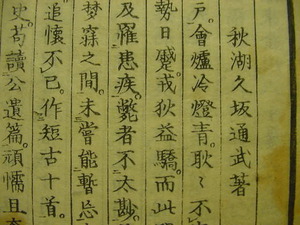 秋湖久坂通武著
戸。會爐冷燈青。耿〻不
勢日蹙。戎狄益驕。而此
及罹患疾。斃者不太尠。
夢寐之間。未嘗能暫忘
追懷不已。作短古十首。
史。苟讀公遺篇。頑懦且